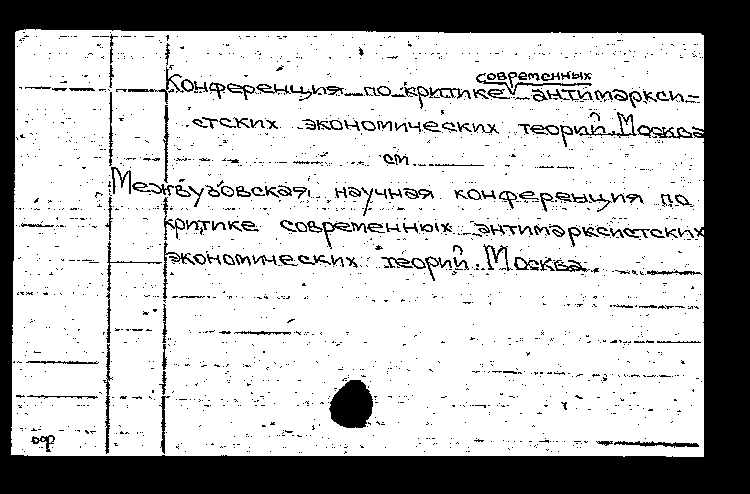 современных
Конференция по критике антимаркси-
стских экономических теорий. Москва
см
Межвузовская научная конференция по
критике современных антимарксистских
экономических теорий. Москва